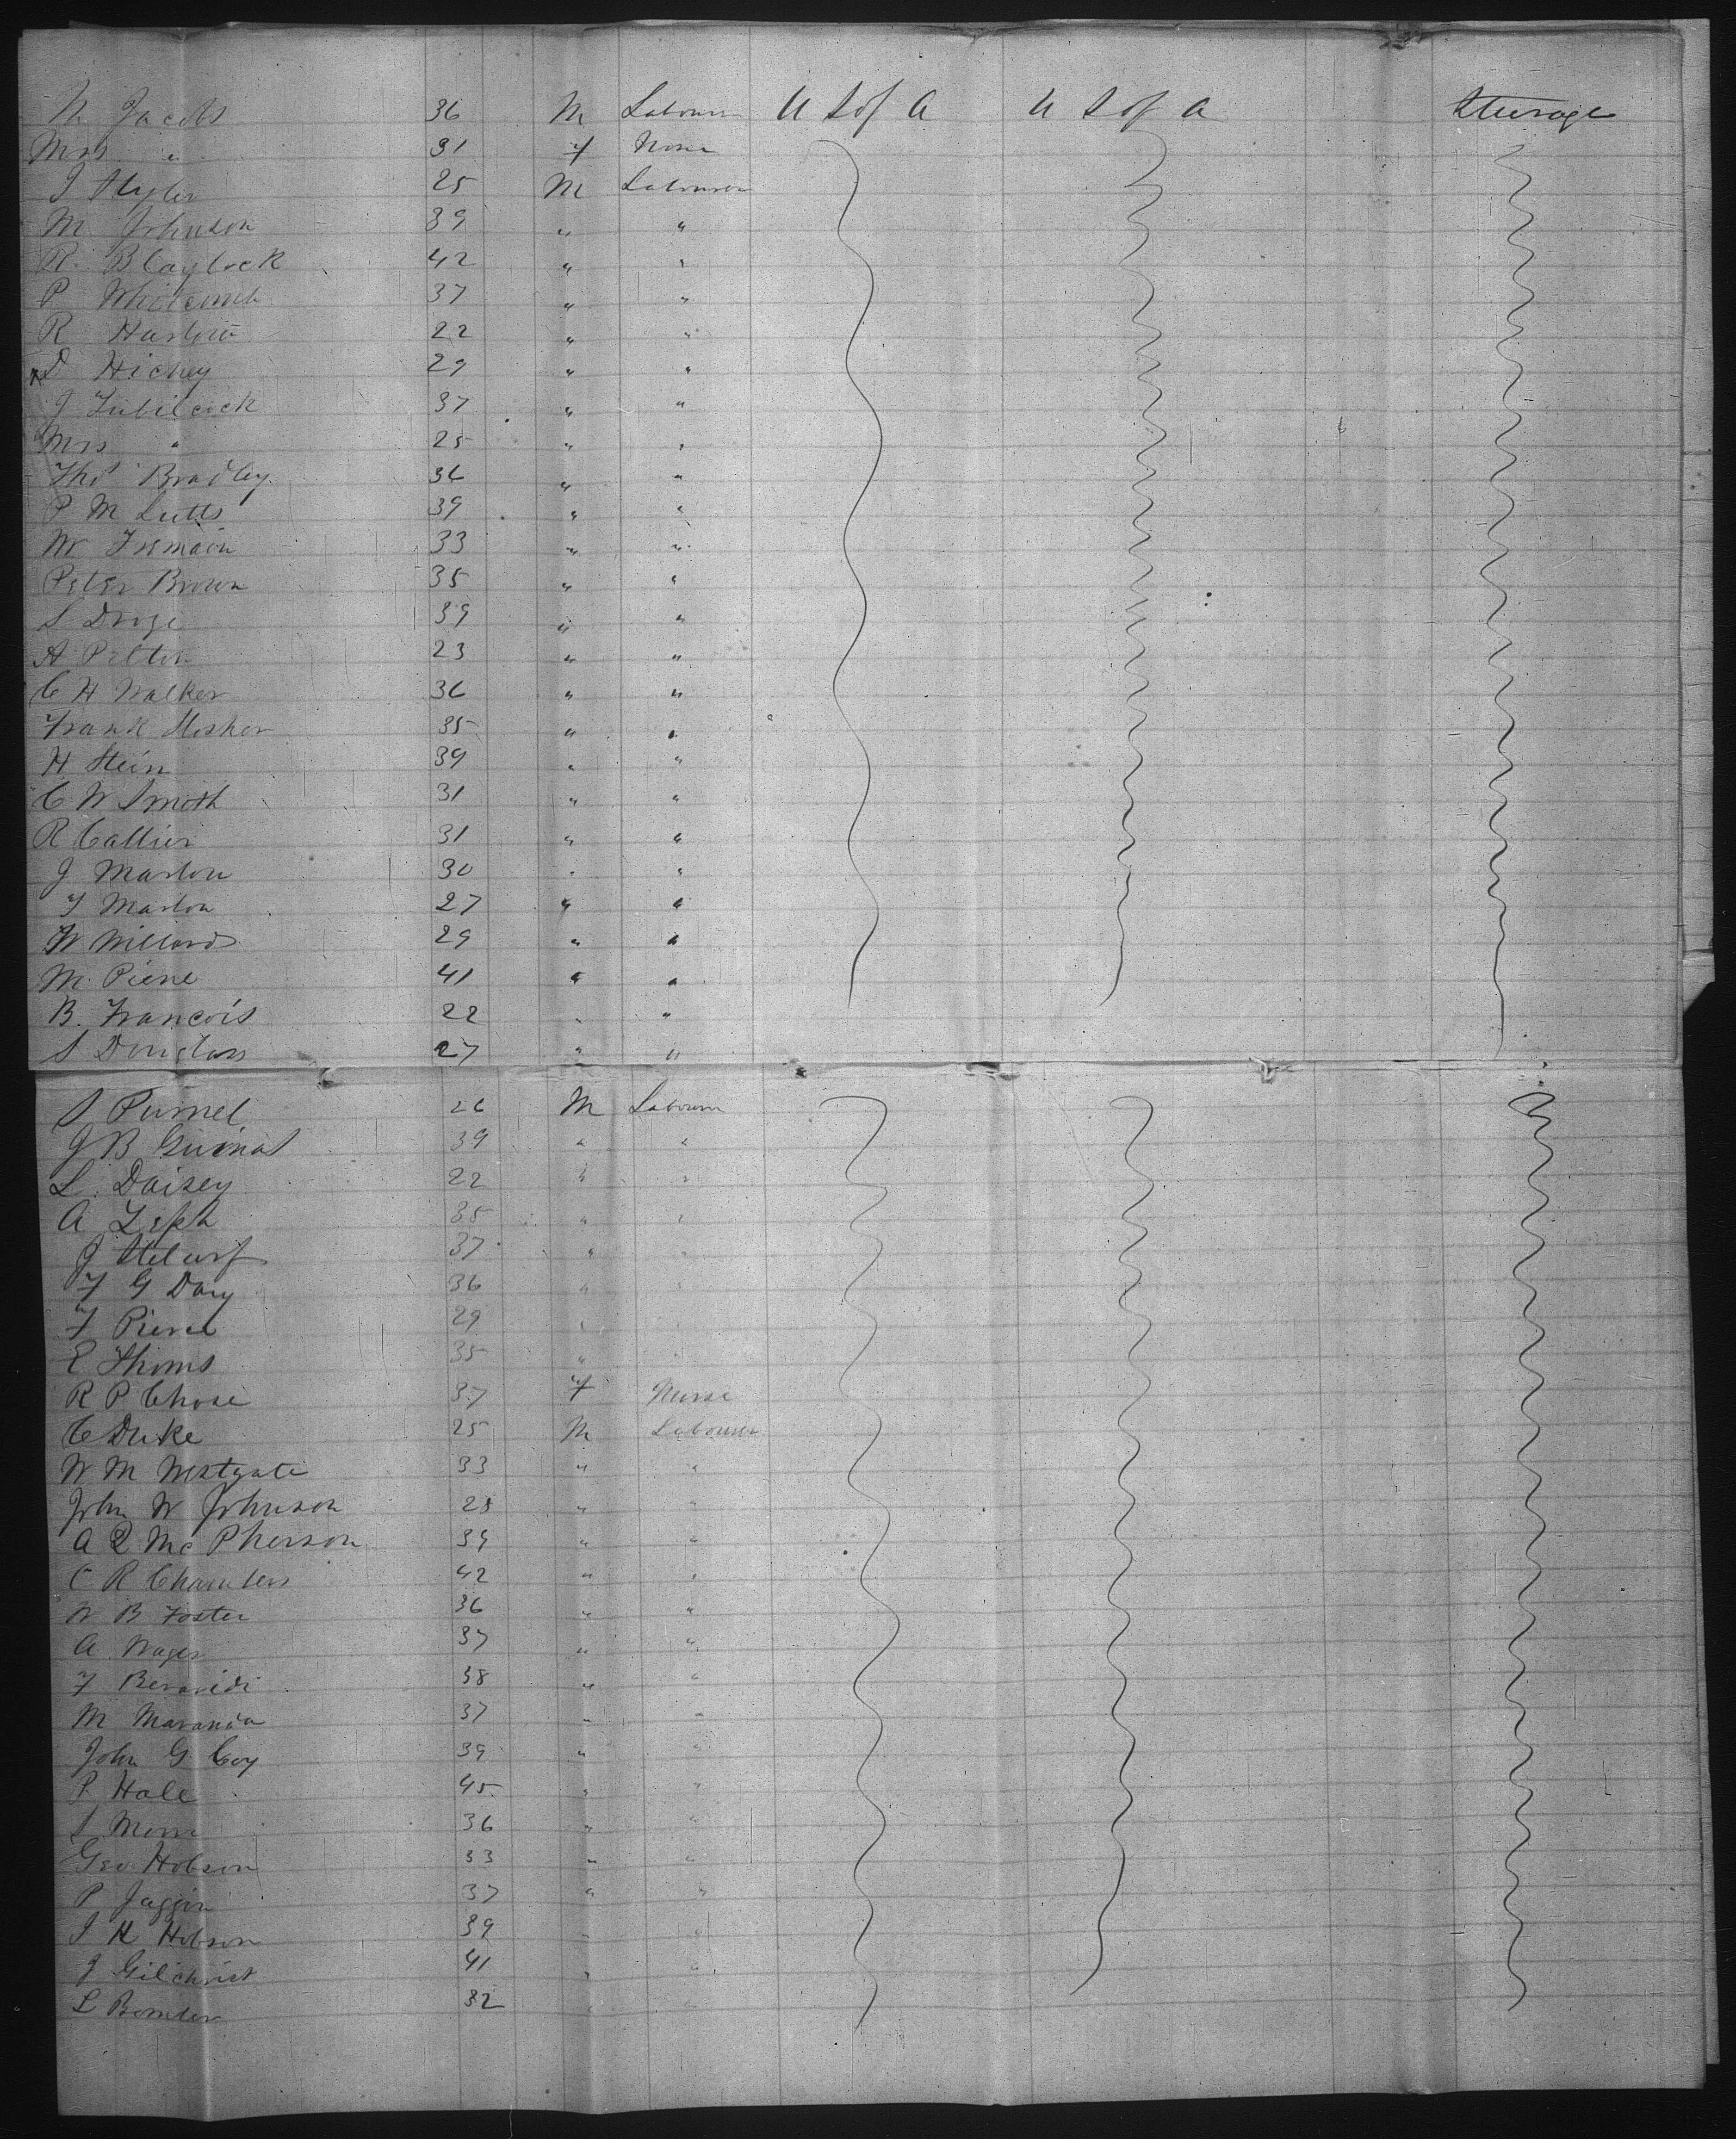 M Jacobs 36 M Labourer U S of A U S of A Steerage
Mrs " 31 F None
J 25 M Labourer
M Johnson 39 " "
R. Blaylock 42 " "
P Whitcomb 37 " "
R Harlow 22 " "
D Hickey 29 " "
J 37 " "
Mrs " 25 " "
Thos Bradley 36 " "
P M Lutts 39 " "
W Tremain 33 " "
Peter Brown 35 " "
S 39 " "
A Pelton 23 " "
C H Walker 36 " "
Frank Mosher 35 " "
H Stein 39 " "
C. W Smith 31 " "
R Collier 31 " "
J Marlow 30 " "
F Marlow 27 " "
W Willard 29 " "
M. Pierre 41 " "
B. Francois 22 " "
S Douglass 27 " "
S Purnel 26 M Labourer
J B 39 " "
L. Daisey 22 " "
A Zeph 35 " "
J 37 " "
F G Day 36 " "
F Pierce 29 " "
E Thoms 35 " "
R P Chase 37 F Nurse
C Duke 25 M Labourer
W M Westgate 33 " "
John W Johnson 28 " "
A R McPherson 39 " "
C R Chambers 42 " "
W B Foster 36 " "
A. Wager 37 " "
F 38 " "
M Maranda 37 " "
John G Coy 39 " "
P Hale 45 " "
S 36 " "
Geo. Hobson 33 " "
P 37 " "
J H Hobson 39 " "
J Gilchrist 41 " "
L 32 " "